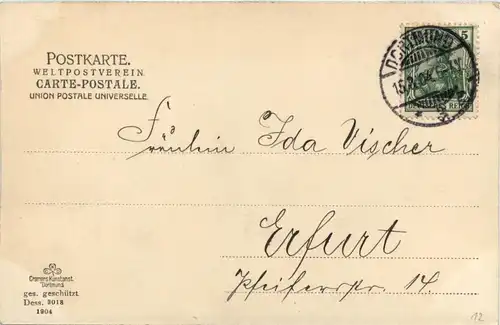 POSTKARTE.
WELTPOSTVEREIN
CARTE-POSTALE.
UNION POSTALE UNIVERSELLE.
DORTMUND
5
Fräulein Ida Vischer
Erfurt
14
Cramers Kunstanst.
Dortmund
ges. geschützt
Dess. 3018
1904
12